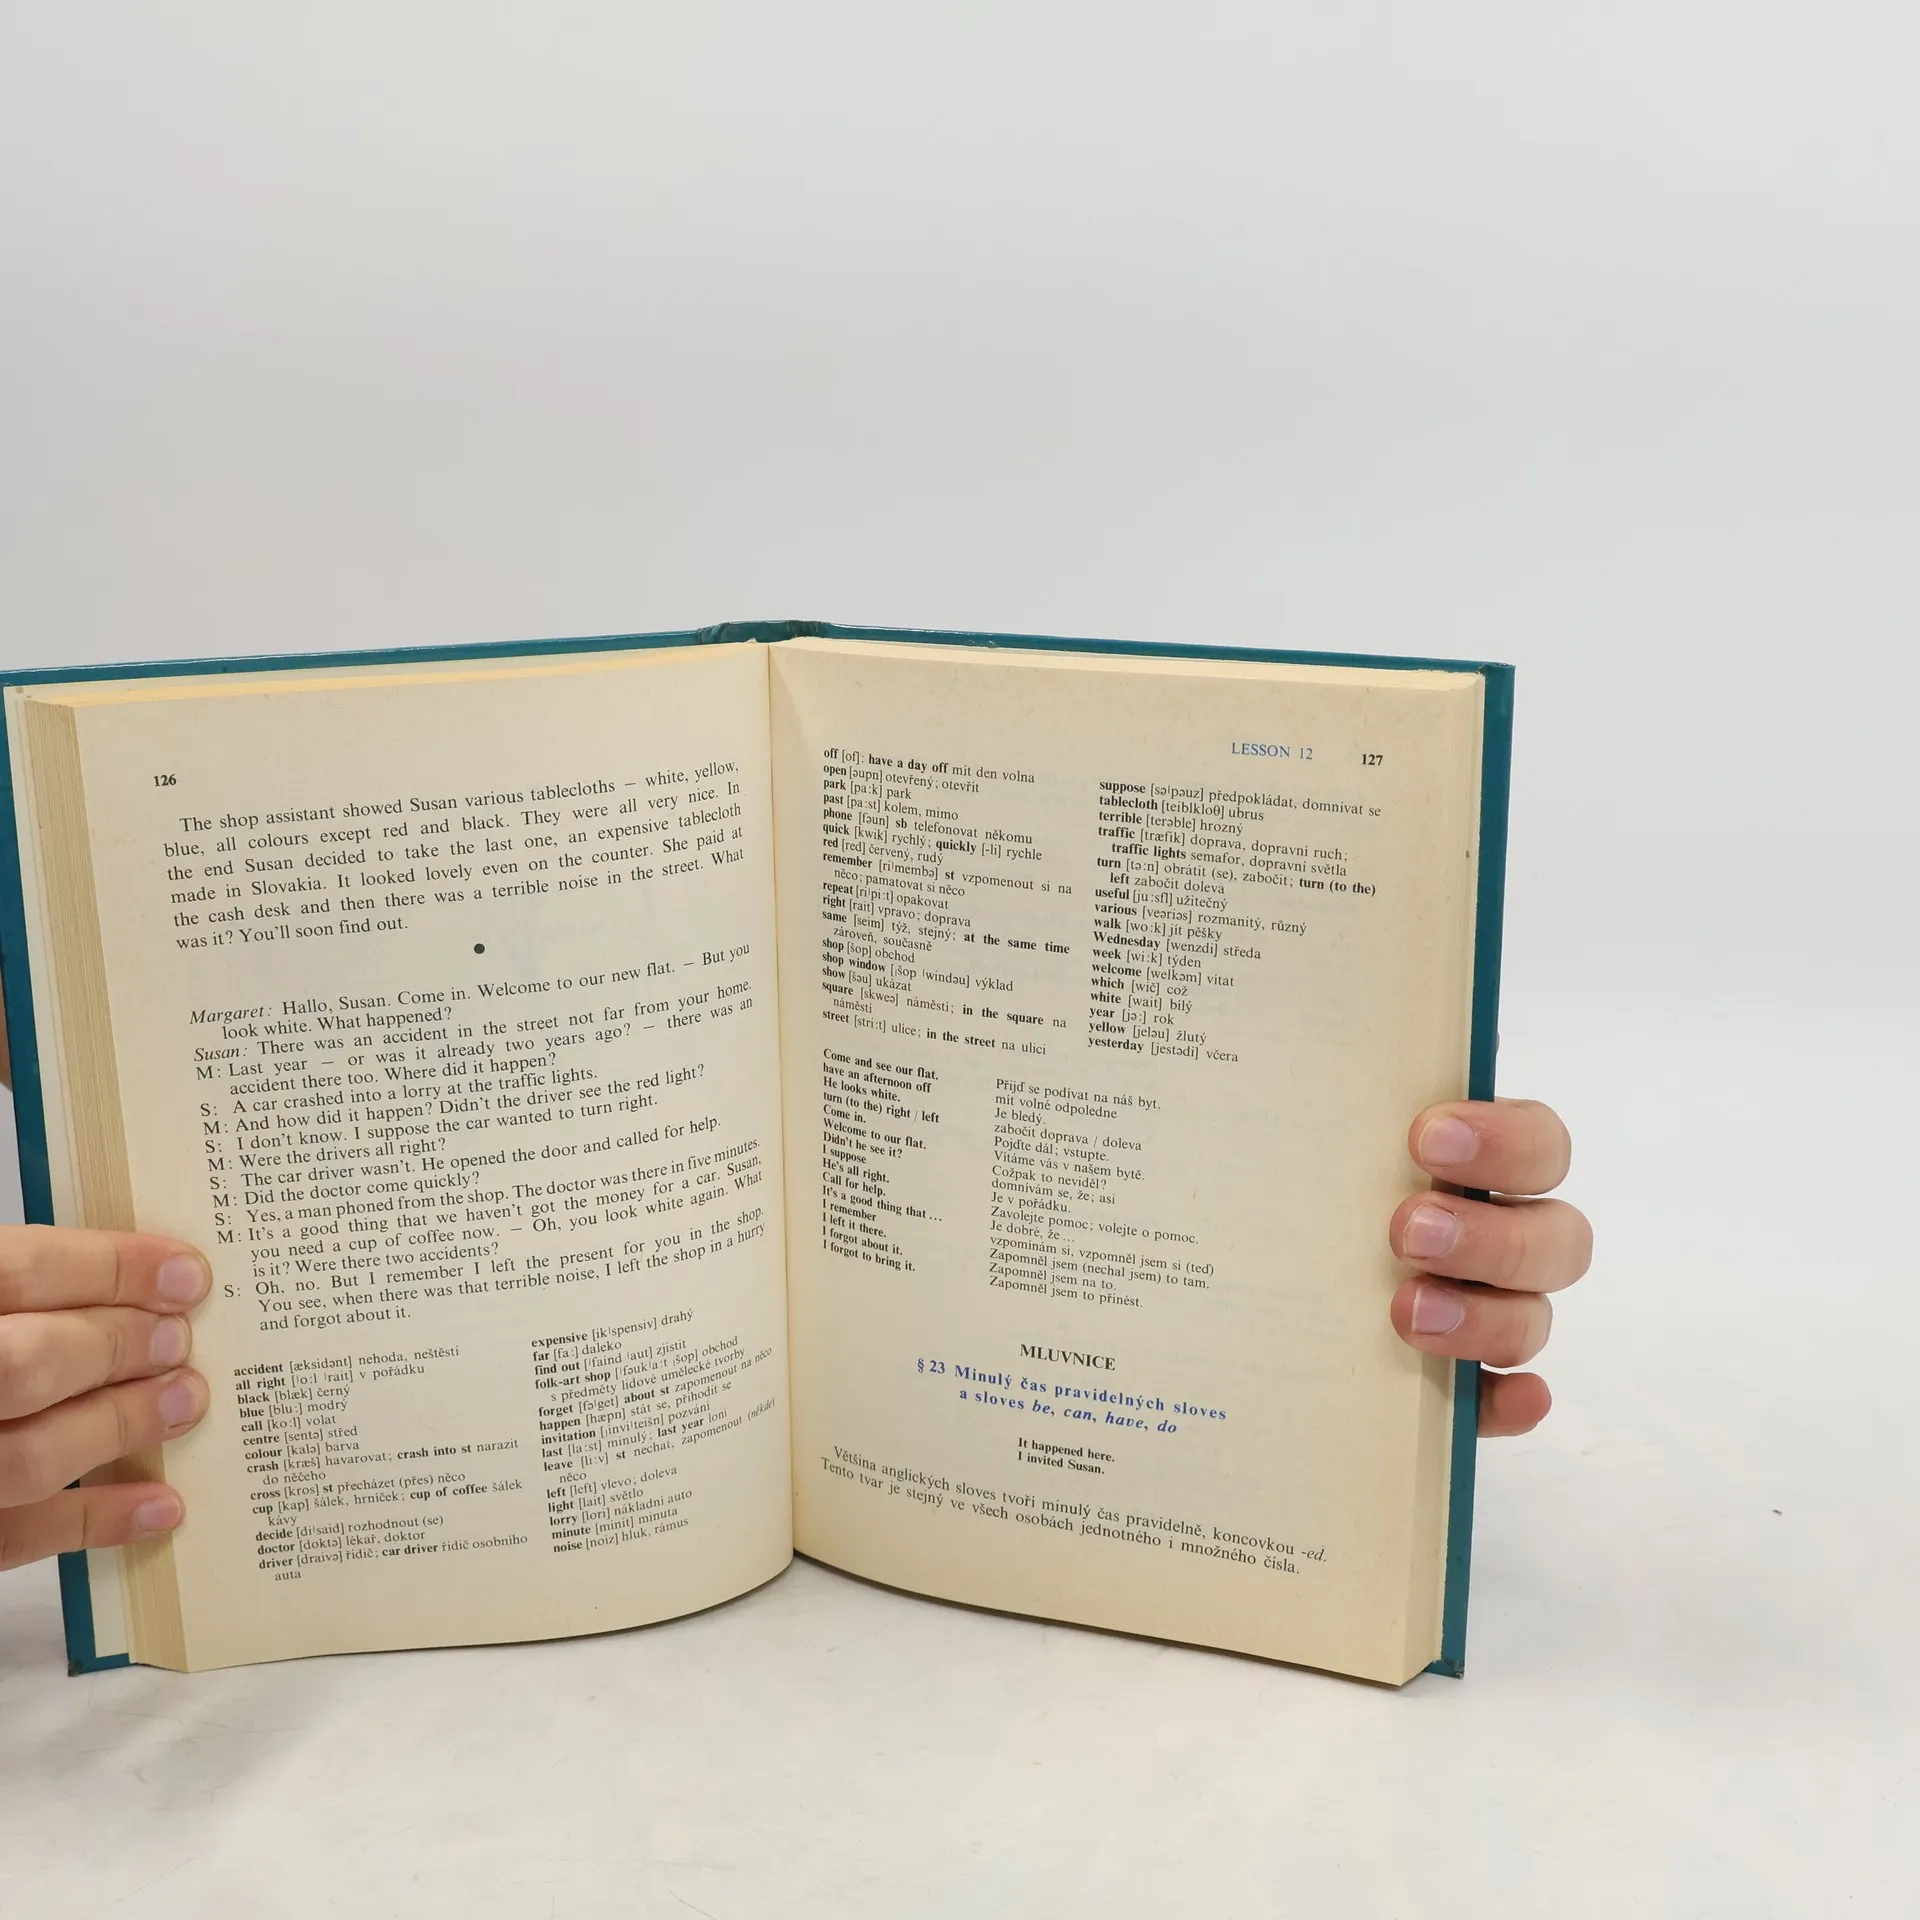 126
The shop assistant showed Susan various tablecloths – white, yellow,
blue, all colours except red and black. They were all very nice. In
the end Susan decided to take the last one, an expensive tablecloth
made in Slovakia. It looked lovely even on the counter. She paid at
the cash desk and then there was a terrible noise in the street. What
was it? You'll soon find out.
Margaret: Hallo, Susan. Come in. Welcome to our new flat. – But you
look white. What happened?
Susan: There was an accident in the street not far from your home.
M: Last year – or was it already two years ago? – there was an
accident there too. Where did it happen?
S: A car crashed into a lorry at the traffic lights.
M: And how did it happen? Didn't the driver see the red light?
S: I don't know. I suppose the car wanted to turn right.
M: Were the drivers all right?
S: The car driver wasn't. He opened the door and called for help.
M: Did the doctor come quickly?
S: Yes, a man phoned from the shop. The doctor was there in five minutes.
M: It's a good thing that we haven't got the money for a car. Susan,
you need a cup of coffee now. – Oh, you look white again. What
is it? Were there two accidents?
S: Oh, no. But I remember I left the present for you in the shop.
You see, when there was that terrible noise, I left the shop in a hurry
and forgot about it.
accident [æksidənt] nehoda, neštěstí
all right [ˈo:l ˈrait] v pořádku
black [blæk] černý
blue [blu:] modrý
call [ko:l] volat
centre [sentə] střed
colour [kalə] barva
crash [kræš] havarovat; crash into st narazit
do něčeho
cross [kros] st přecházet (přes) něco
cup [kap] šálek, hrníček; cup of coffee šálek
kávy
decide [diˈsaid] rozhodnout (se)
doctor [doktə] lékař, doktor
driver [draivə] řidič; car driver řidič osobního
auta
expensive [ikˈspensiv] drahý
far [fa:] daleko
find out [ˈfaind ˈaut] zjistit
folk-art shop [ˈfəukˈa:t ˌšop] obchod
s předměty lidové umělecké tvorby
forget [fəˈget] about st zapomenout na něco
happen [hæpn] stát se, přihodit se
invitation [ˌinviˈteišn] pozvání
last [la:st] minulý; last year loni
leave [li:v] st nechat, zapomenout (někde)
něco
left [left] vlevo; doleva
light [lait] světlo
lorry [lori] nákladní auto
minute [minit] minuta
noise [noiz] hluk, rámus
LESSON 12 127
off [of]: have a day off mít den volna
open [əupn] otevřený; otevřít
park [pa:k] park
past [pa:st] kolem, mimo
phone [fəun] sb telefonovat někomu
quick [kwik] rychlý; quickly [-li] rychle
red [red] červený, rudý
remember [riˈmembə] st vzpomenout si na
něco; pamatovat si něco
repeat [riˈpi:t] opakovat
right [rait] vpravo; doprava
same [seim] týž, stejný; at the same time
zároveň, současně
shop [šop] obchod
shop window [ˌšop ˈwindəu] výklad
show [šəu] ukázat
square [skweə] náměstí; in the square na
náměstí
street [stri:t] ulice; in the street na ulici
suppose [səˈpəuz] předpokládat, domnívat se
tablecloth [teiblkloθ] ubrus
terrible [terəble] hrozný
traffic [træfik] doprava, dopravní ruch;
traffic lights semafor, dopravní světla
turn [tə:n] obrátit (se), zabočit; turn (to the)
left zabočit doleva
useful [ju:sfl] užitečný
various [veəriəs] rozmanitý, různý
walk [wo:k] jít pěšky
Wednesday [wenzdi] středa
week [wi:k] týden
welcome [welkəm] vítat
which [wič] což
white [wait] bílý
year [jə:] rok
yellow [jeləu] žlutý
yesterday [jestədi] včera
Come and see our flat. Přijď se podívat na náš byt.
have an afternoon off mít volné odpoledne
He looks white. Je bledý.
turn (to the) right / left zabočit doprava / doleva
Come in. Pojďte dál; vstupte.
Welcome to our flat. Vítáme vás v našem bytě.
Didn't he see it? Cožpak to neviděl?
I suppose domnívám se, že; asi
He's all right. Je v pořádku.
Call for help. Zavolejte pomoc; volejte o pomoc.
It's a good thing that ... Je dobré, že ...
I remember vzpomínám si, vzpomněl jsem si (teď)
I left it there. Zapomněl jsem (nechal jsem) to tam.
I forgot about it. Zapomněl jsem na to.
I forgot to bring it. Zapomněl jsem to přinést.
MLUVNICE
§ 23 Minulý čas pravidelných sloves
a sloves be, can, have, do
It happened here.
I invited Susan.
Většina anglických sloves tvoří minulý čas pravidelně, koncovkou -ed.
Tento tvar je stejný ve všech osobách jednotného i množného čísla.